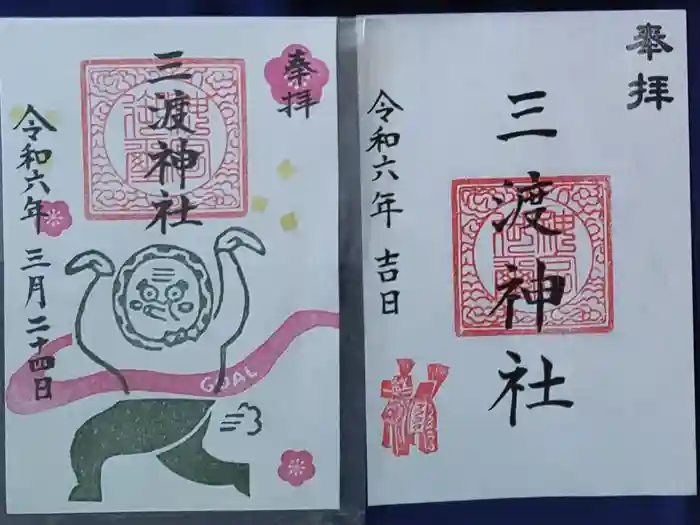 奉拝
三渡神社
令和六年 三月二十四日
GOAL
奉拝
三渡神社
令和六年 吉日